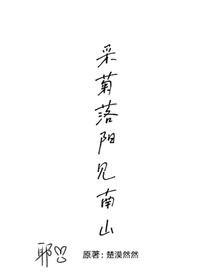 采菊落阳见南山
耶
原著：楚漠然然